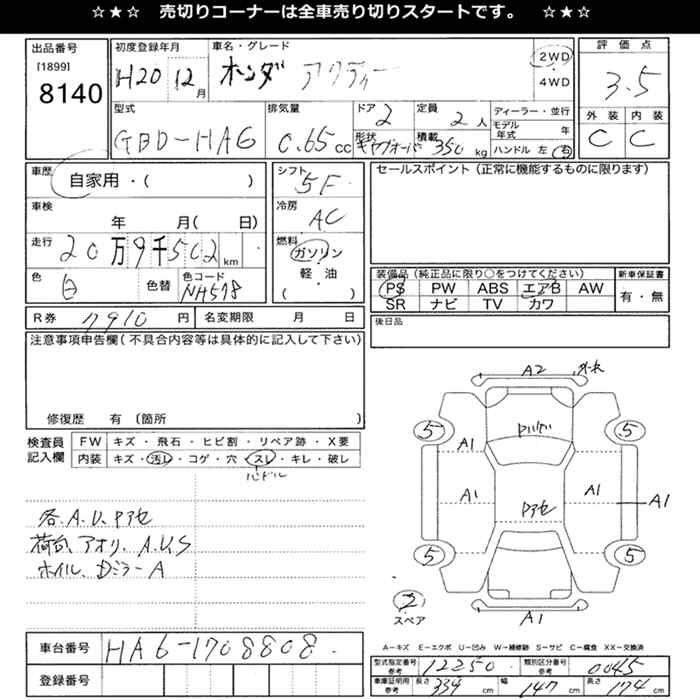 ☆★☆ 売切りコーナーは全車売り切りスタートです。 ☆★☆
出品番号
[1899]
8140
初度登録年月
H20 12月
車名・グレード
ホンダ アクティー
2WD
4WD
評価点
3.5
外装 内装
C C
型式
GBD-HA6
排気量
0.65cc
ドア
2
形状
キャブオーバ
定員
2人
積載
350kg
ディーラー・並行
モデル年式 年
ハンドル 左 右
車歴
自家用・( )
車検
年 月( 日)
走行
20万9千502km
色
白
色替
色コード
NH578
シフト
5F
冷房
AC
燃料
ガソリン
・
軽油
( )
セールスポイント(正常に機能するものに限ります)
装備品(純正品に限り○をつけてください)
PS PW ABS エアB AW
SR ナビ TV カワ
新車保証書
有・無
R券 7910円
名変期限 月 日
後日品
注意事項申告欄(不具合内容等は具体的に記入して下さい)
修復歴 有(箇所 )
検査員記入欄
FW キズ・飛石・ヒビ割・リペア跡・X要
内装 キズ・汚レ・コゲ・穴・スレ・キレ・破レ
ハンドル
各A.U.Pアセ
荷台、アオリ、A.U.S
ホイル、Dミラー A
A2
5 5
A1
A1 Pアセ A1 A1
5 5
2
スペア
A1
A-キズ E-エクボ U-凹み W-補修跡 S-サビ C-腐食 XX-交換済
車台番号 HA6-1708808
登録番号
型式指定番号 参考 12250
類別区分番号 参考 0045
車庫証明用 参考 長さ 339cm 幅 147cm 高さ 174cm